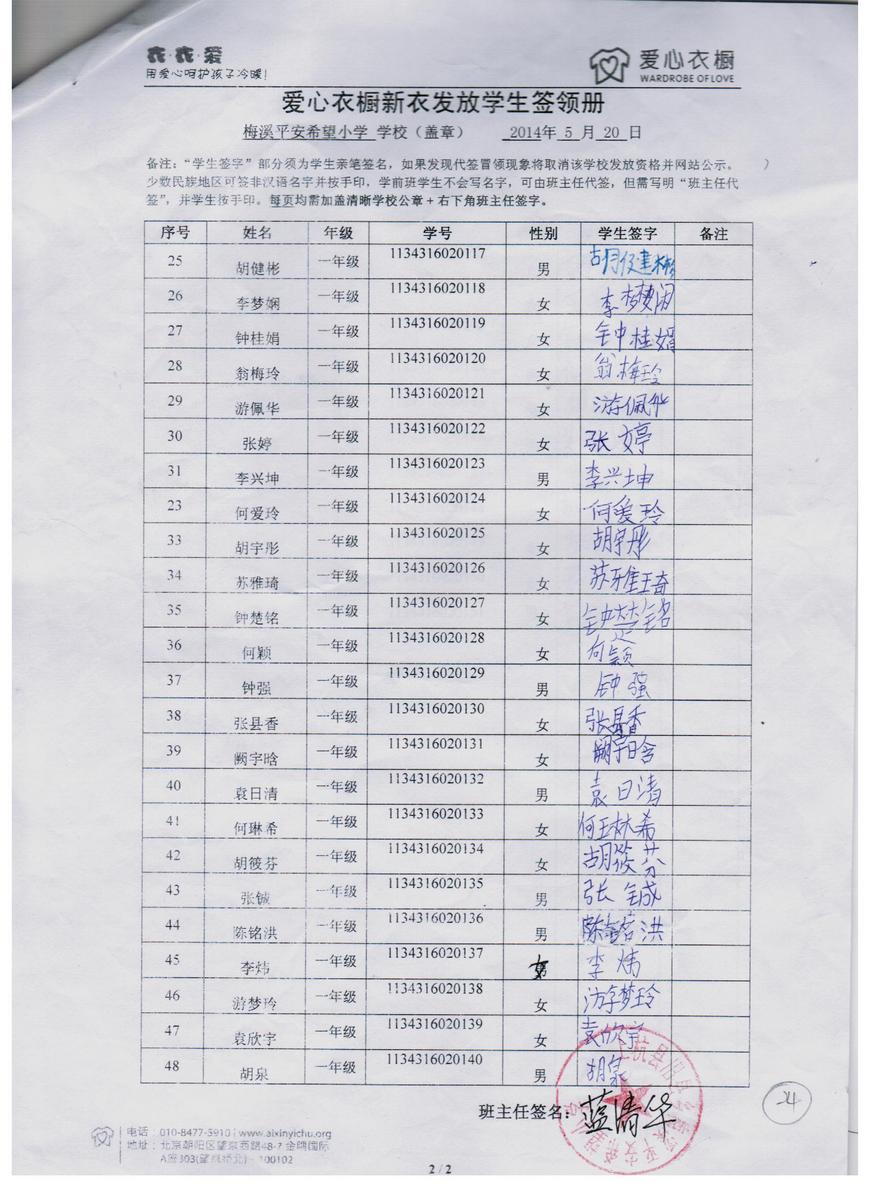 衣·衣·爱
用爱心呵护孩子冷暖!
爱心衣橱
WARDROBE OF LOVE
爱心衣橱新衣发放学生签领册
梅溪平安希望小学 学校（盖章） 2014年 5 月 20 日
备注：“学生签字”部分须为学生亲笔签名，如果发现代签冒领现象将取消该学校发放资格并网站公示。 ）
少数民族地区可签非汉语名字并按手印，学前班学生不会写名字，可由班主任代签，但需写明“班主任代
签”，并学生按手印。每页均需加盖清晰学校公章＋右下角班主任签字。
序号 姓名 年级 学号 性别 学生签字 备注
25 胡健彬 一年级 1134316020117 男 胡健彬
26 李梦娴 一年级 1134316020118 女 李梦娴
27 钟桂娟 一年级 1134316020119 女 钟桂娟
28 翁梅玲 一年级 1134316020120 女 翁梅玲
29 游佩华 一年级 1134316020121 女 游佩华
30 张婷 一年级 1134316020122 女 张婷
31 李兴坤 一年级 1134316020123 男 李兴坤
23 何爱玲 一年级 1134316020124 女 何爱玲
33 胡宇彤 一年级 1134316020125 女 胡宇彤
34 苏雅琦 一年级 1134316020126 女 苏雅琦
35 钟楚铭 一年级 1134316020127 女 钟楚铭
36 何颖 一年级 1134316020128 女 何颖
37 钟强 一年级 1134316020129 男 钟强
38 张县香 一年级 1134316020130 女 张县香
39 阙宇晗 一年级 1134316020131 女 阙宇晗
40 袁日清 一年级 1134316020132 男 袁日清
41 何琳希 一年级 1134316020133 女 何琳希
42 胡筱芬 一年级 1134316020134 女 胡筱芬
43 张铖 一年级 1134316020135 男 张铖
44 陈铭洪 一年级 1134316020136 男 陈铭洪
45 李炜 一年级 1134316020137 女 李炜
46 游梦玲 一年级 1134316020138 女 游梦玲
47 袁欣宇 一年级 1134316020139 女 袁欣宇
48 胡泉 一年级 1134316020140 男 胡泉
班主任签名：蓝清华
24
电话：010-8477-5910 | www.aixinyichu.org
地址：北京朝阳区望京西路48-7 金隅国际
A座303(望京桥北) - 100102
2 / 2